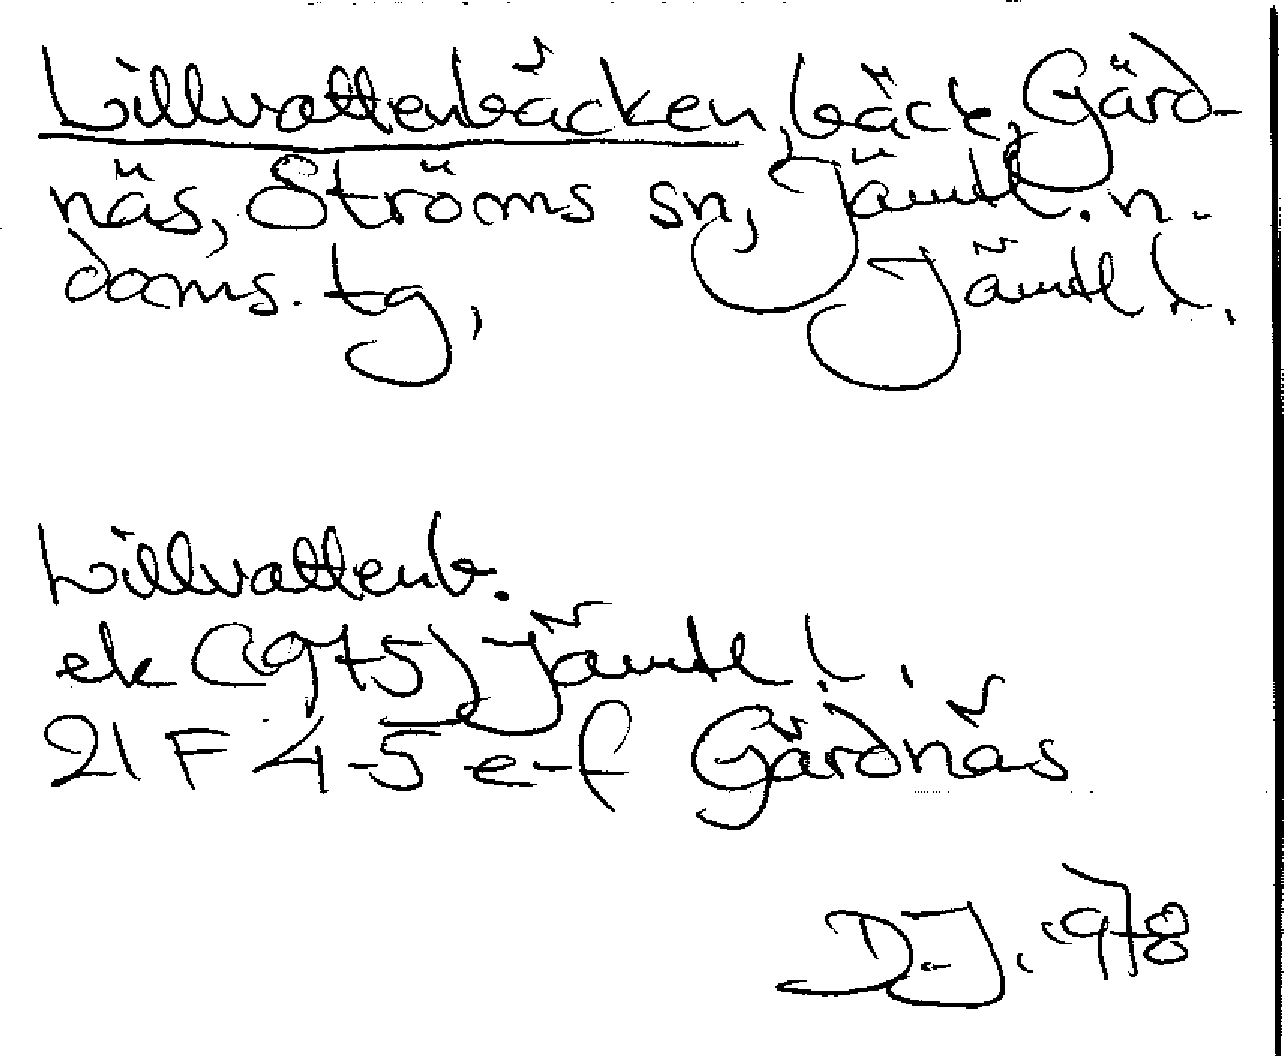 Lillvattenbäcken, bäck, Gärd-
näs, Ströms sn, Jämtl. n.
doms. tg, Jämtl l.,
Lillvattenb.
ek (1975) Jämtl l.,
21 F 4-5 e-f Gärdnäs
D-J. 1978